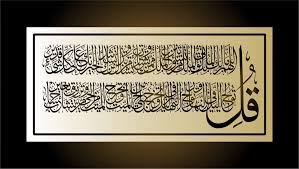 قُلِ اللهم مالك الملك تؤتي الملك من تشاء وتنزع الملك ممن تشاء وتعز من تشاء وتذل من تشاء بيدك الخير إنك على كل شيء قدير
تولج الليل في النهار وتولج النهار في الليل وتخرج الحي من الميت وتخرج الميت من الحي وترزق من تشاء بغير حساب